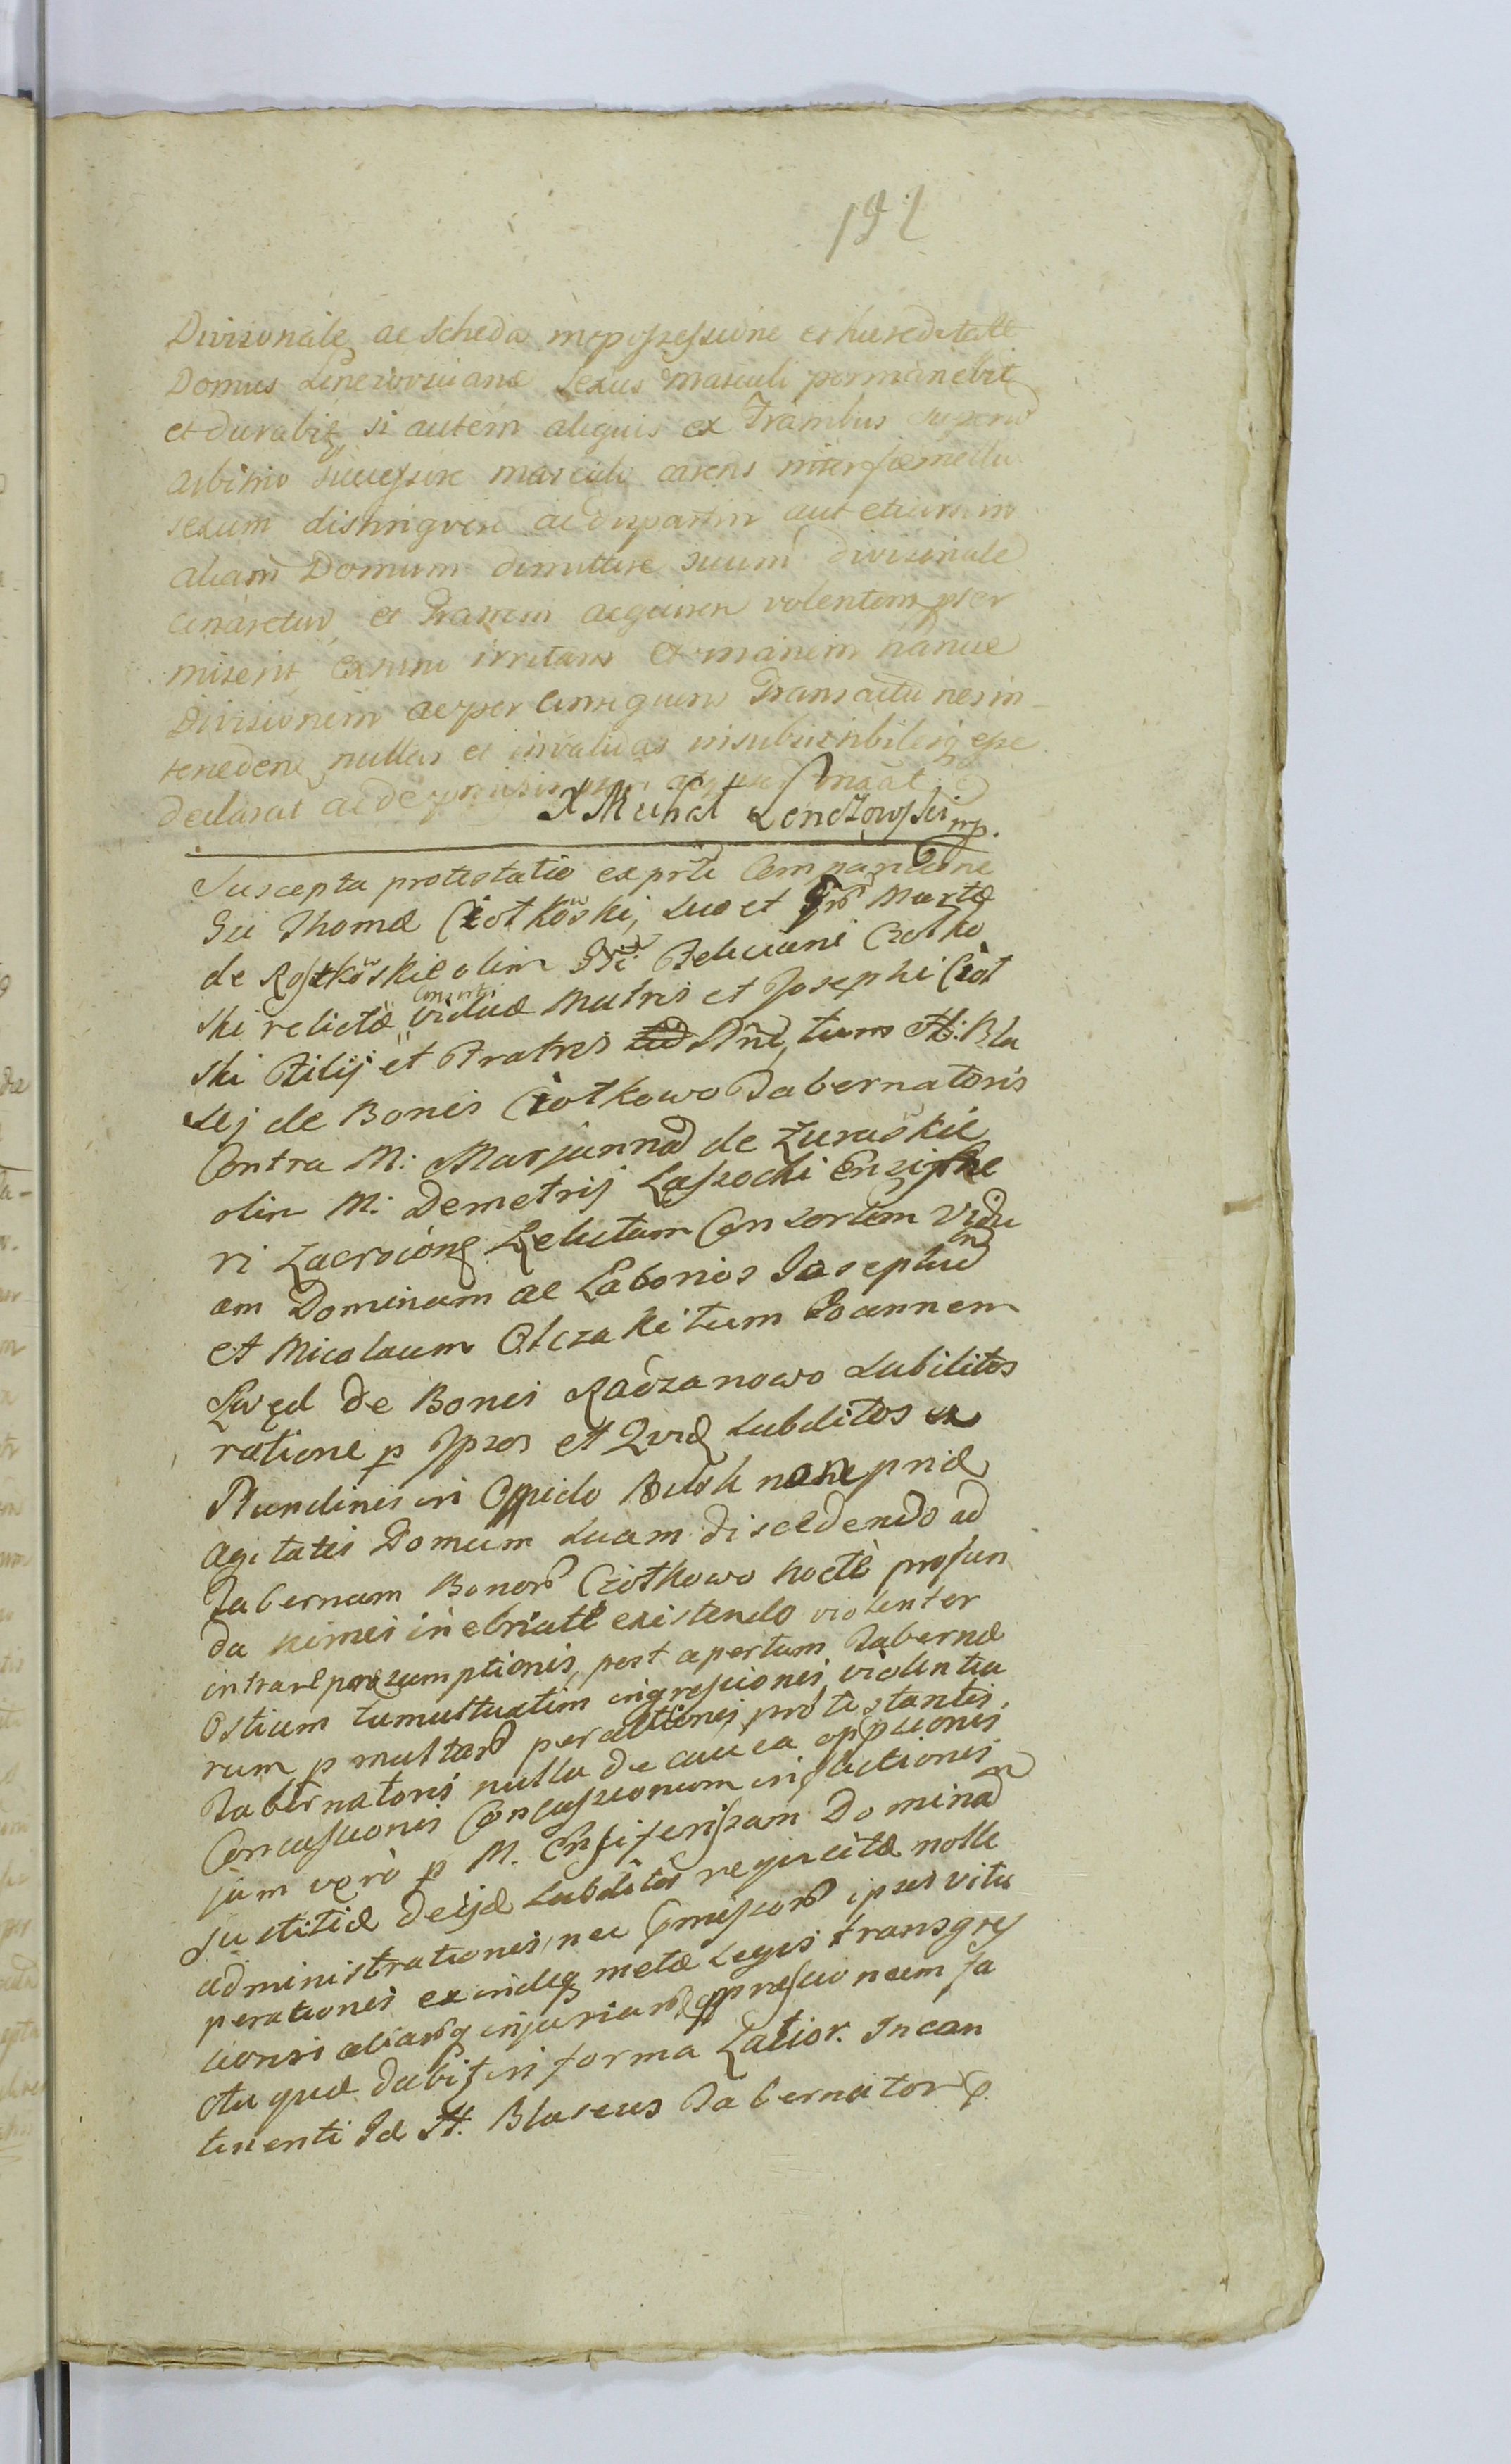 192
Divisionale ac scheda in possessione et haereditate
Domus Lenczoviana sexus masculi permanebit
et durabit, si autem aliquis ex Fratribus
arbitrio successore masculo carens inter
sexum distinguere ac dispartiri aut etiam in
aliam Domum dimittere suum divisionale
conaretur et Fratrem acquirere volentem prer
miserit, ex nunc irritam et inanem hancce
Divisionem ac per consequens Transactiones in
nullas et invalidas insubsistibilesq esse
declarat ac de
X Michał Lenczowski mp.
Suscepta protestatio ex prte Comparitione
Gsi Thomae Ciotkowski, suo et Martae
de Rostkowskie olim Gsi Feliciani Czotko
ski relictae Consortis viduae Matris et Josephi Ciot
ski Filij et Fratris tum H: Bla
sij de Bonis Ciotkowo Tabernatoris
Contra M: Marjannam de Zuraskie
olim M: Demetrij Lassocki Ensife
ri Zacrocien Relictam Consortem Vidu
am Dominam ac Labonos Josephum
et Nicolaum Olczaki tum Joannem
Szwed de Bonis Radzanowo Subditos
ratione p Ipsos et Subditos ex
Nundinis in Oppido Bilsk
agitatis Domum suam discedendo ad
Tabernam Bonor Ciotkowo nocte profun
da nimis inebriati existendo violenter
intrare praesumptionis, post apertum Tabernae
Ostium tumultuatim ingressionis violentia
rum p multar peractionis protestantis
Tabernatoris nulla de causa oppssionis
Concussionis Concussionum inflictionis
jam vero p M. Ensiferissam Dominam
justitiae de ijsd Subditos requisitae nolle
administrationis, nec Comissor ipsus vitu
perationis exindeq metae Legis transgres
sionis aliarq injuriar oppraessionum fa
cta quae dabit in forma Latior. Incon
tinenti Id H. Blaseus Tabernator p.